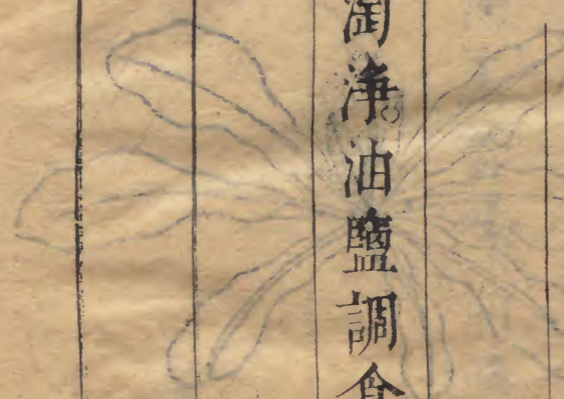 淘淨油鹽調食